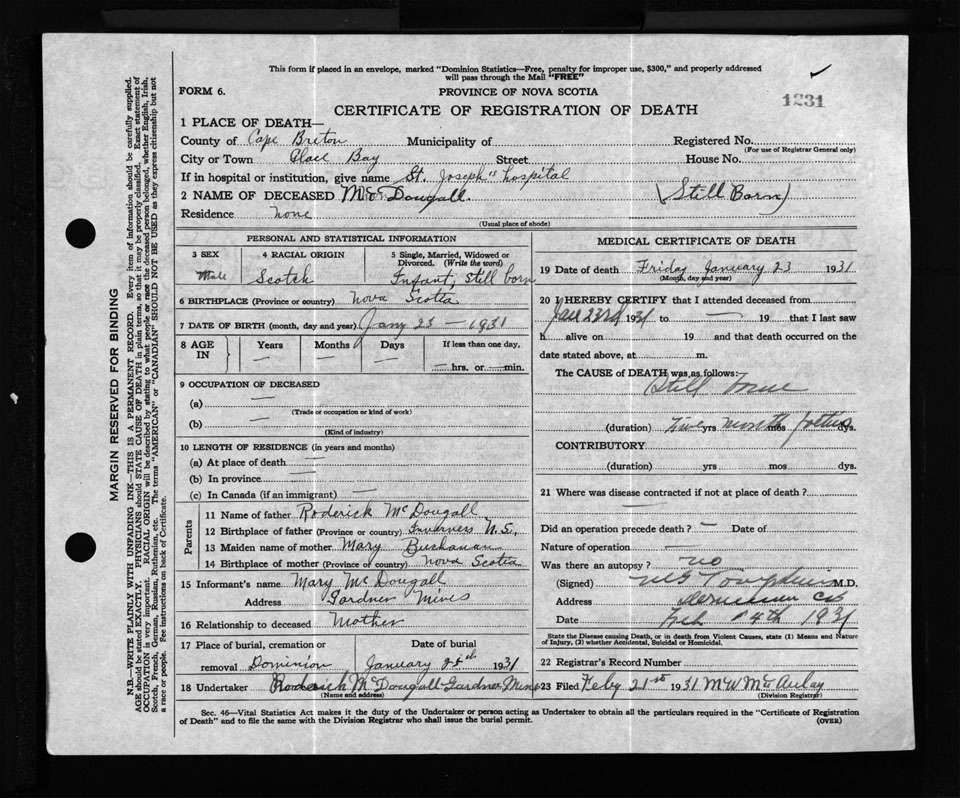 This form if placed in an envelope, marked "Dominion Statistics—Free, penalty for improper use, $300," and properly addressed
will pass through the Mail "FREE"
FORM 6.
PROVINCE OF NOVA SCOTIA
1231
CERTIFICATE OF REGISTRATION OF DEATH
1 PLACE OF DEATH—
County of Cape Breton Municipality of Registered No.
(For use of Registrar General only)
City or Town Glace Bay Street House No.
If in hospital or institution, give name St. Joseph's hospital
2 NAME OF DECEASED McDougall. (Still Born)
Residence none
(Usual place of abode)
PERSONAL AND STATISTICAL INFORMATION
3 SEX
Male
4 RACIAL ORIGIN
Scotch
5 Single, Married, Widowed or
Divorced. (Write the word)
Infant, Still born
6 BIRTHPLACE (Province or country) Nova Scotia
7 DATE OF BIRTH (month, day and year) Jany 23 — 1931
8 AGE
IN
Years
—
Months
—
Days
—
If less than one day,
— hrs. or — min.
9 OCCUPATION OF DECEASED
(a) —
(Trade or occupation or kind of work)
(b) —
(Kind of industry)
10 LENGTH OF RESIDENCE (in years and months)
(a) At place of death —
(b) In province —
(c) In Canada (if an immigrant) —
Parents
11 Name of father Roderick McDougall
12 Birthplace of father (Province or country) Inverness N.S,
13 Maiden name of mother Mary Buchanan
14 Birthplace of mother (Province or country) Nova Scotia
15 Informant's name Mary McDougall
Address Gardner Mines
16 Relationship to deceased Mother
17 Place of burial, cremation or Date of burial
removal Dominion January 1931
18 Undertaker Roderick McDougall Gardner Mines
(Name and address)
MEDICAL CERTIFICATE OF DEATH
19 Date of death Friday January 23 1931
(Month, day and year)
20 I HEREBY CERTIFY that I attended deceased from
Jan 23rd 1931 to — 19 that I last saw
h alive on 19 and that death occurred on the
date stated above, at m.
The CAUSE of DEATH was as follows:
Still
(duration) Five yrs months mos foetus dys.
CONTRIBUTORY
(duration) yrs mos dys.
21 Where was disease contracted if not at place of death?
—
Did an operation precede death? — Date of
Nature of operation —
Was there an autopsy? no
(Signed) Tompkins M.D.
Address
Date Feb 4th 1931
State the Disease causing Death, or in death from Violent Causes, state (1) Means and Nature
of Injury, (2) whether Accidental, Suicidal or Homicidal.
22 Registrar's Record Number
23 Filed Feby 21st 1931 M W McAulay
(Division Registrar)
Sec. 46—Vital Statistics Act makes it the duty of the Undertaker or person acting as Undertaker to obtain all the particulars required in the "Certificate of Registration
of Death" and to file the same with the Division Registrar who shall issue the burial permit.
(OVER)
MARGIN RESERVED FOR BINDING
N.B.—WRITE PLAINLY WITH UNFADING INK—THIS IS A PERMANENT RECORD. Every item of information should be carefully supplied.
AGE should be stated EXACTLY. PHYSICIANS should STATE CAUSE OF DEATH in plain terms, so that it may be properly classified. Exact statement of
OCCUPATION is very important. RACIAL ORIGIN will be described by stating to what people or race the deceased person belonged, whether English, Irish,
Scotch, French, German, Russian, Ruthenian, etc. The terms "AMERICAN" or "CANADIAN" SHOULD NOT BE USED as they express citizenship but not
a race or people. See instructions on back of Certificate.